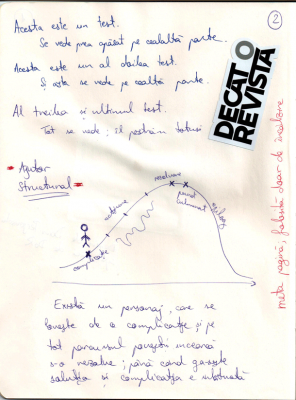 2
Acesta este un test.
Se vede prea apăsat pe cealaltă parte.
Acesta este un al doilea test.
Și ăsta se vede pe cealtă parte.
DECÂT O
REVISTĂ
Al treilea si ultimul test.
Tot se vede; îl păstrăm totuși
Ajutor
Structural
complicație
acțiune
rezolvare
punct
culminant
meta pagină, folosită doar de încălzire
Există un personaj, care se
lovește de o complicație și pe
tot parcursul poveștii încearcă
s-o rezolve; până când găsește
soluția si complicația e